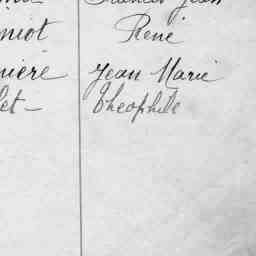 Francis Jean
niot René
nière Jean Marie
let - Théophile